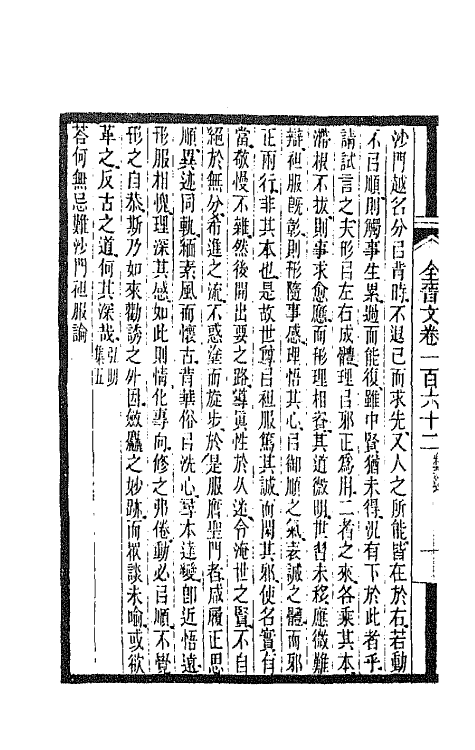 全晉文卷一百六十二 釋氏 十
沙門越名分㠯背時不退己而求先又人之所能皆在於右若動
不㠯順則觸事生累過而能復雖中賢猶未得況有下於此者乎
請試言之夫形㠯左右成體理㠯邪正爲用二者之來各乘其本
滯根不拔則事求愈應而形理相資其道微明世習未移應微難
辯袒服旣彰則形隨事感理悟其心㠯御順之氣表誠之體而邪
正兩行非其本也是故世尊㠯袒服篤其誠而閑其邪使名實有
當敬慢不雜然後開出要之路導眞性於久迷令淹世之賢不自
絕於無分希進之流不惑塗而旋步於是服膺聖門者咸履正思
順異迹同軌緬素風而懷古背華俗㠯洗心尋本達變卽近悟遠
形服相愧理深其感如此則情化專向修之弗倦動必㠯順不覺
形之自恭斯乃如來勸誘之外因斂麤之妙跡而眾談未喻或欲
革之反古之道何其深哉 弘明集五
荅何無忌難沙門袒服論